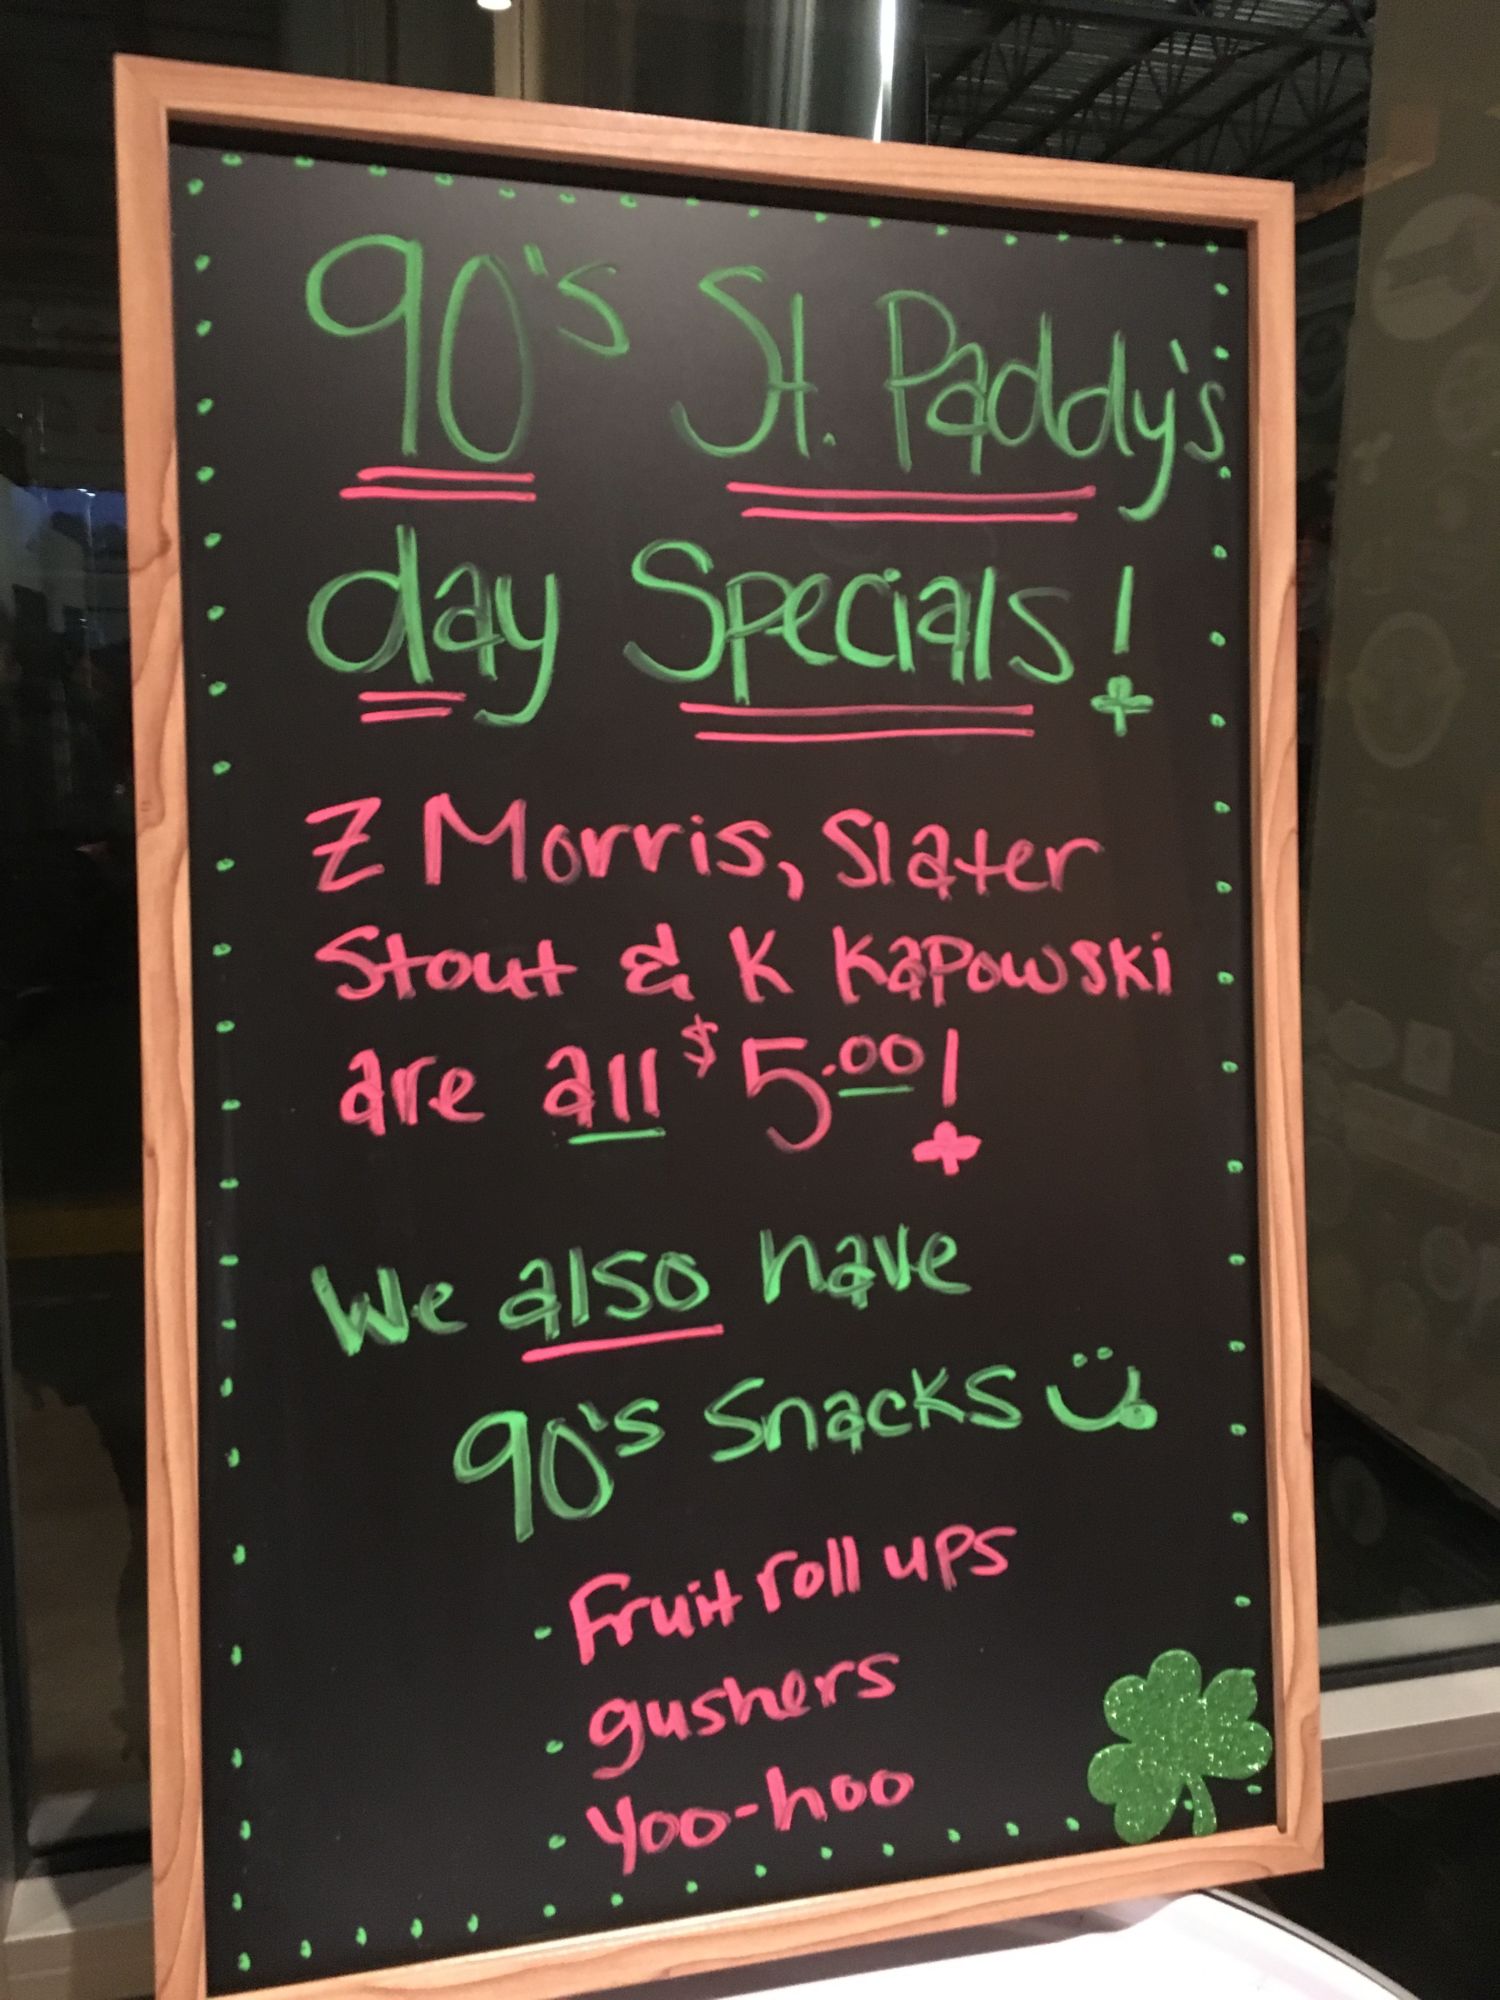 90's St. Paddy's
day Specials!
Z Morris, Slater
Stout & K Kapowski
are all $5.00!
We also have
90's Snacks
- Fruit roll ups
- gushers
- Yoo-hoo